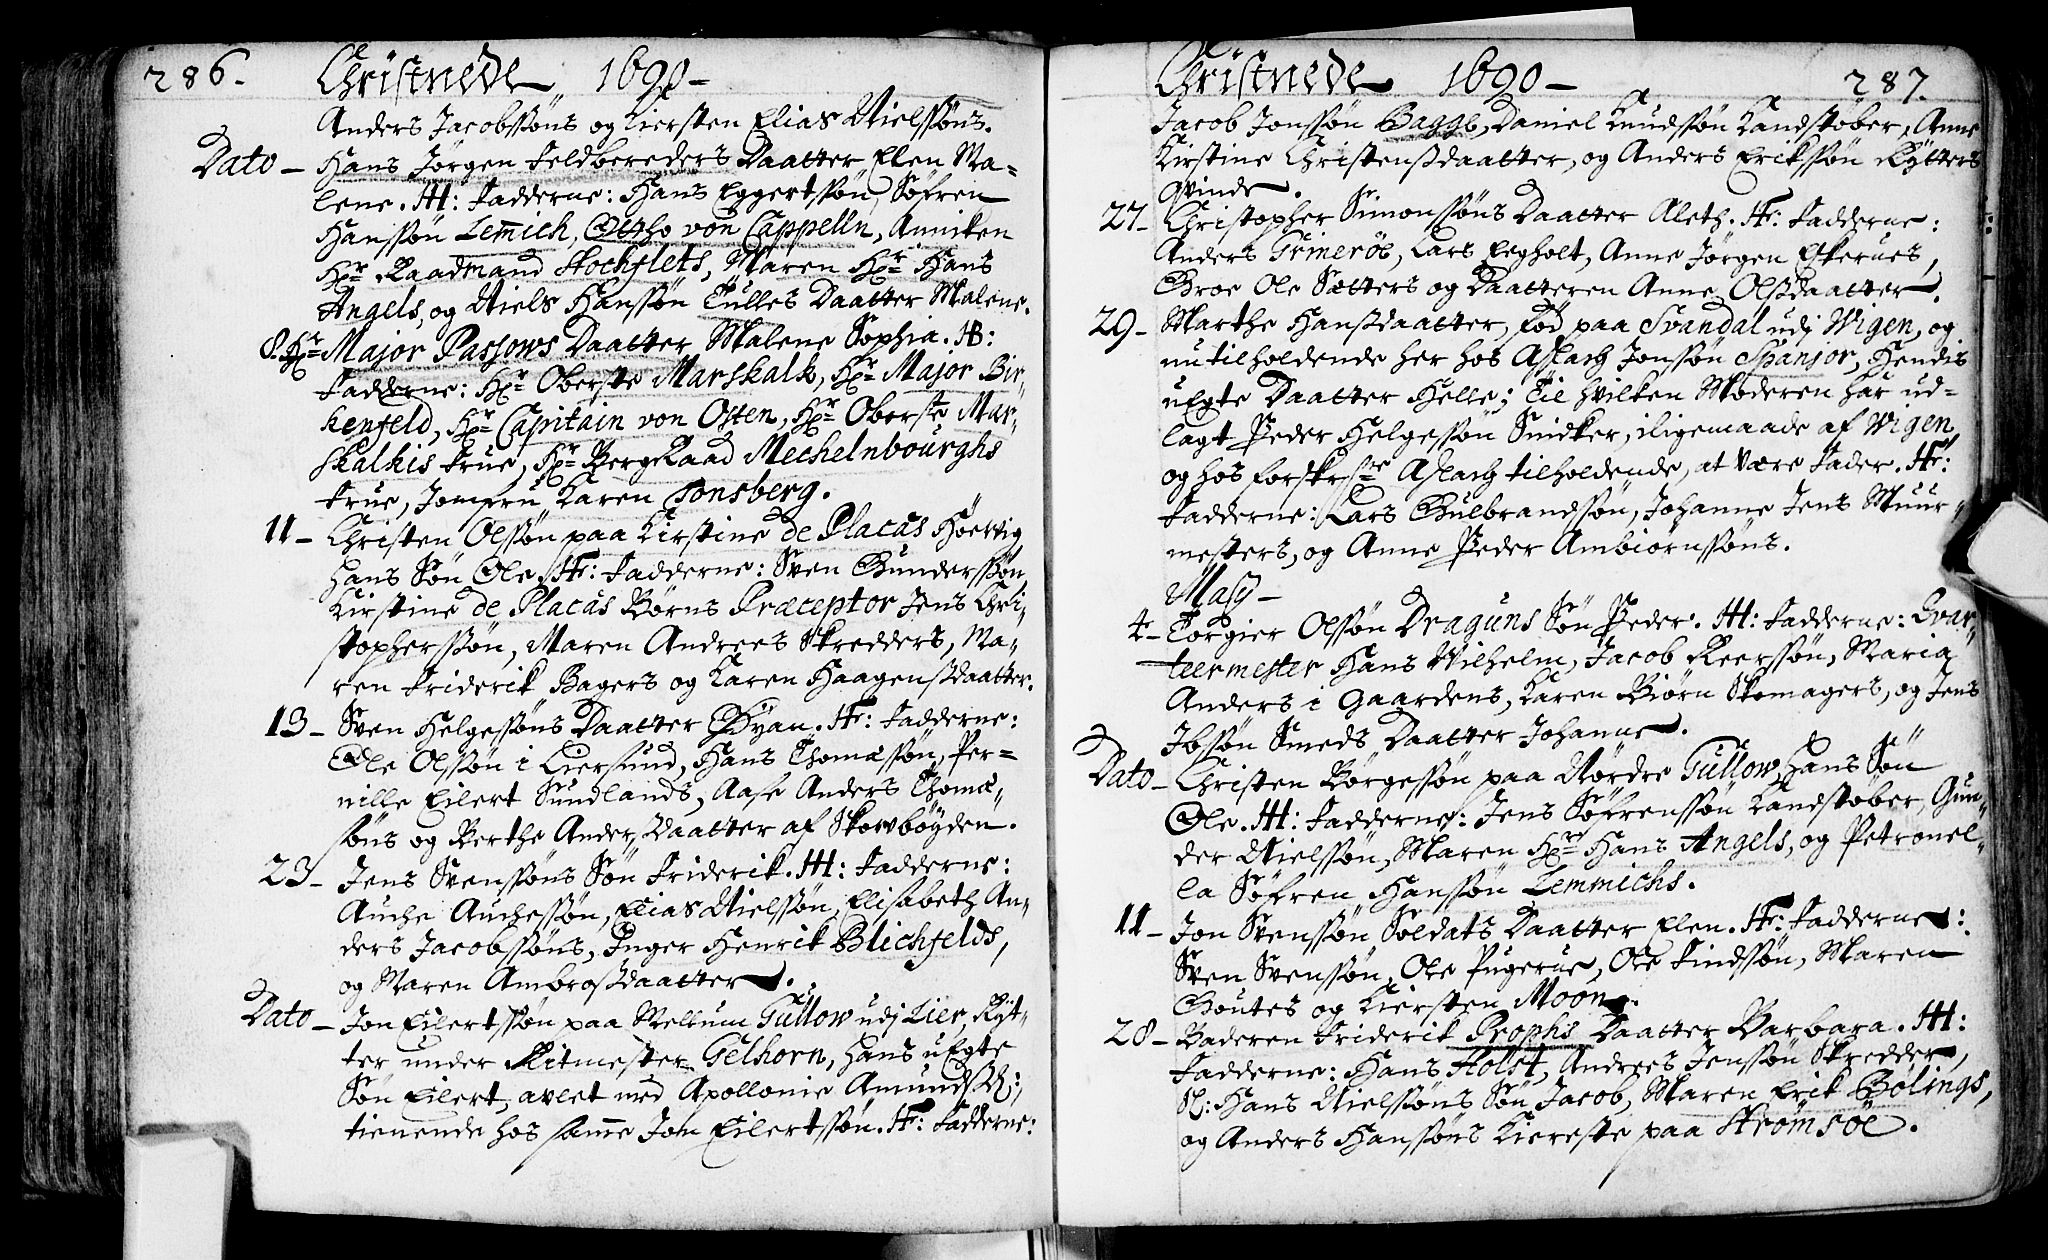 286.
Christnede 1690-
Anders Jacobssøns og Kiersten Elias Nielssøns.
Dato - Hans Jørgen Feldbereders Daatter Elen Ma-
lene. HH: Fadderne: Hans Eggertssøn, Søfren
Hanssøn Lem̄ich, Ottho von Cappelln, Anniken
Hr Raadmand Stochflets, Maren Hr Hans
Angels, og Niels Hanssøn Tulles Daatter Malene.
8. Hr Major Passows Daatter Malene Sophia. HB:
Fadderne: Hr Oberste Marskalk, Hr Major Bir-
kenfeld, Hr Capitain von Osten, Hr Oberste Mar-
skalkis Frue, Hr BergRaad Mechelnbourghs
Frue, Jomfru Karen Tonsberg.
11 - Christen Olssøn paa Kirstine de Placas Høevig
hans Søn Ole. Hr: Fadderne: Sven Gunderssøn,
Kirstine de Placas Børns Præceptor Jens Chri-
stopherssøn, Maren Andrees Skredders, Ma-
ren Friderik Bagers og Karen Haagensdaatter.
13 - Sven Helgessøns Daatter Gyan. Hr: Fadderne:
Ole Olssøn i Liersund, Hans Thomæssøn, Per-
nille Eilert Sundlands, Aase Anders Thomæ-
søns og Berthe Andersdaatter af Skovbøyden.
23 - Jens Svenssøns Søn Friderik. HH: Fadderne:
Auche Auchessøn, Elias Nielssøn, Elisabeth An-
ders Jacobssøns, Inger Henrik Blichfelds,
og Maren Ambrosdaatter.
Dato - Jon Eilertssøn paa Mellum Gullow udj Lier, Ryt-
ter under Ritmester Gelhorn, hans uEgte
Søn Eilert, avlet med Apollonie Amundsd:
tienende hos samme Jon Eilertssøn. Hr: Fadderne:
Christnede 1690- 287.
Jacob Jonssøn Bagge, Daniel Knudssøn Kandstøber, Anne
Kirstine Christensdaatter, og Anders Erikssøn Rytters
Qvinde.
27- Christopher Simonssøns Daatter Aleth. Hr: Fadderne:
Anders Grimerøe, Lars Eegholt, Anne Jørgen Eskerues,
Groe Ole Sætters og Daatteren Anne Olsdaatter.
29- Marthe Hansdaatter, fød paa Svandal udj Wigen, og
nu tilholdende her hos Aslach Jonssøn Spanjor, Hendis
uEgte Daatter Helle; Til hvilken Moderen har ud-
lagt Peder Helgessøn Snidker, iligemaade af Wigen,
og hos forskrefne Aslach tilholdende, at være Fader. Hr:
Fadderne: Lars Gulbrandssøn, Johanne Jens Muur-
mesters, og Anne Peder Ambiørnssøns.
Maij-
4- Torgier Olssøn Draguns Søn Peder. HH: Fadderne: Qvar-
teermester Hans Vilhelm, Jacob Reerssøn, Maria
Anders i Gaardens, Karen Biørn Skomagers, og Jens
Ibssøn Smeds Daatter Johanne.
Dato - Christen Børgessøn paa Nordre Gullow, hans Søn
Ole. HH: Fadderne: Jens Søfrenssøn Kandstøber, Gun-
der Nielssøn, Maren Hr Hans Angels, og Petronel-
la Søfren Hanssøn Lemmichs.
11- Jon Svenssøn Soldats Daatter Elen. Hr: Fadderne:
Sven Svenssøn, Ole Pugerue, Ole Findssøn, Maren
Goutes og Kiersten Moon.
28- Baderen Friderik Prophs Daatter Barbara. HH:
Fadderne: Hans Holst, Andrees Jenssøn Skredder,
Sl: Hans Nielssøns Søn Jacob, Maren Erik Bølings,
og Anders Hanssøns Kiereste paa Strømsøe.